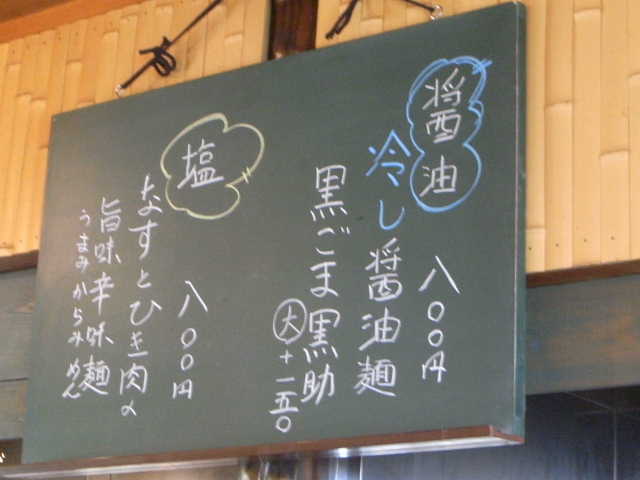 醤油
八〇〇円
冷し醤油麺
黒ごま黒助
大+一五〇
塩
八〇〇円
なすとひき肉の
旨味辛味麺
うまみからみめん